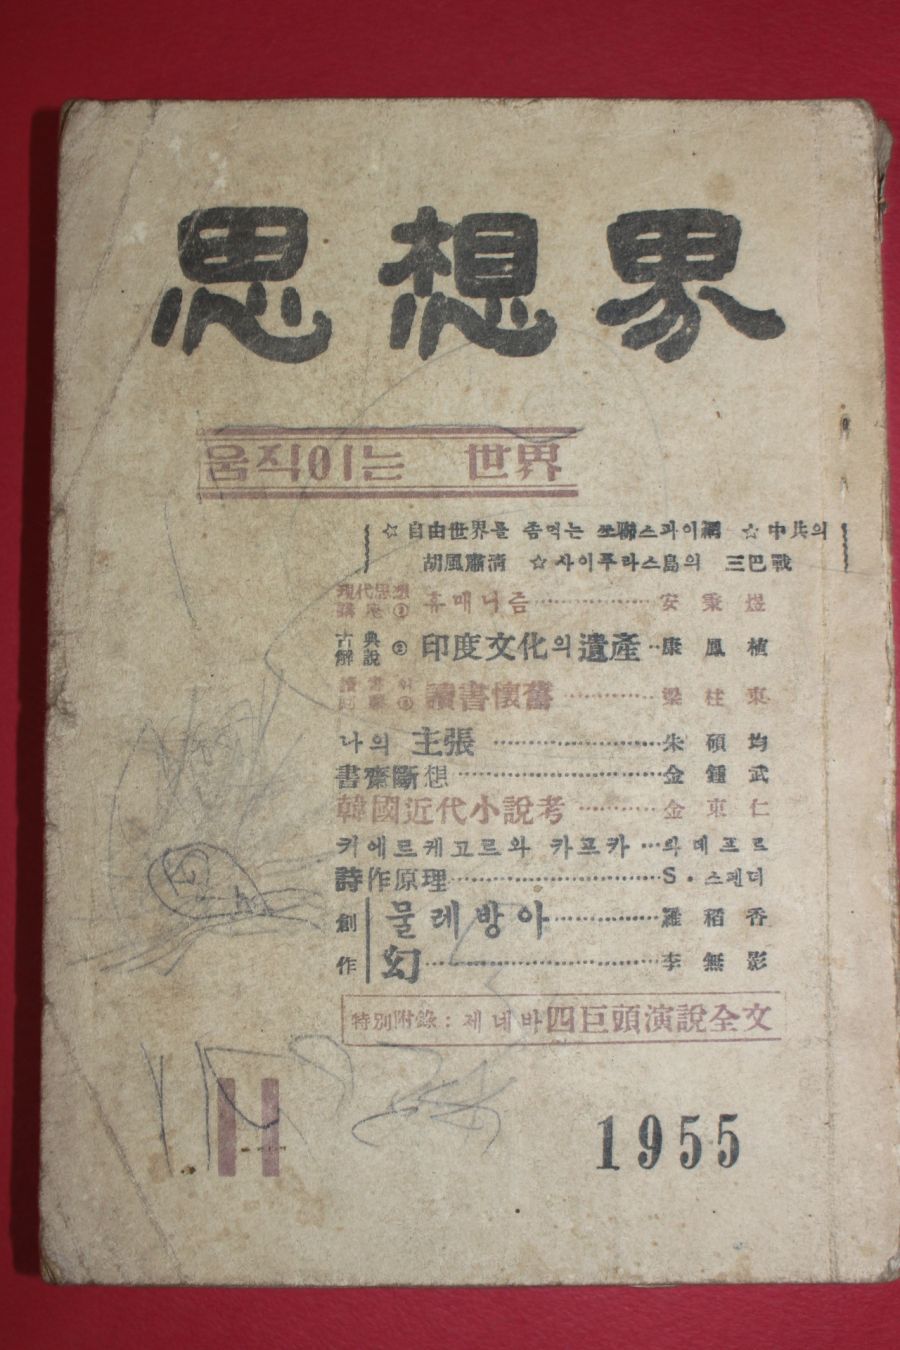 思想界
움직이는 世界
☆自由世界를 좀먹는 쏘聯스파이網 ☆中共의
胡風肅淸 ☆사이푸라스島의 三巴戰
現代思想 講座 휴매니즘 安秉煜
古典解說 印度文化의 遺產 康鳳植
讀書 讀書懷舊 梁柱東
나의 主張 朱碩均
書齋斷想 金鍾武
韓國近代小說考 金東仁
키에르케고르와 카프카 라데프르
詩作原理 S·스펜더
創作 물레방아 羅稻香
幻 李無影
特別附錄: 제네바 四巨頭演說全文
11
1955